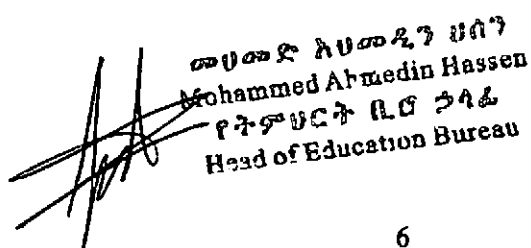 መሀመድ አህመዲን ሀሰን
Mohammed Ahmedin Hassen
የትምህርት ቢሮ ኃላፊ
Head of Education Bureau
6